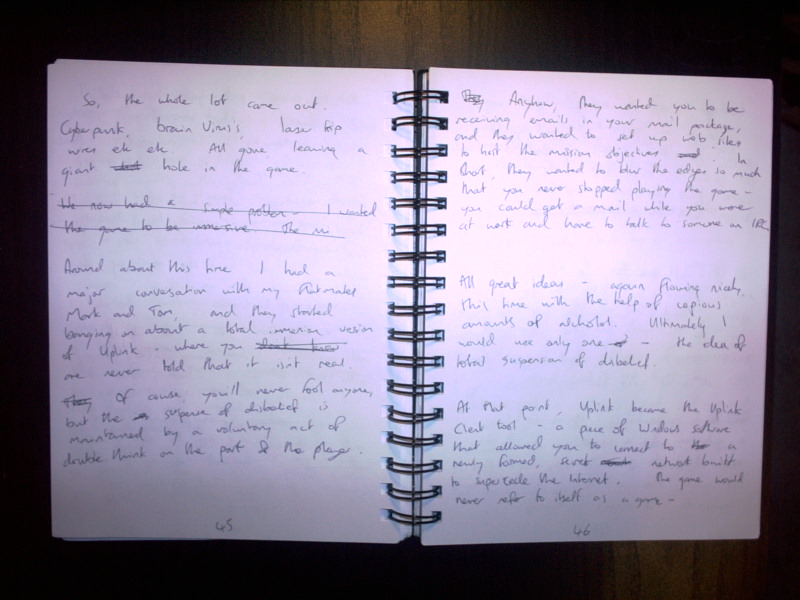 So, the whole lot came out.
Cyberpunk, brain Virus's, laser trip
wires etc etc. All gone leaving a
giant hole in the game.
We now had a simple problem - I wanted
the game to be immersive. The
Around about this time I had a
major conversation with my flatmates
Mark and Tom, and they started
banging on about a total immersion version
of Uplink - where you
are never told that it isn't real.
Of course, you'll never fool anyone,
but the suspense of disbelief is
maintained by a voluntary act of
double think on the part of the player.
45
Anyhow, they wanted you to be
receiving emails in your mail package,
and they wanted to set up web sites
to host the mission objectives. In
short, they wanted to blur the edges so much
that you never stopped playing the game -
you could get a mail while you were
at work and have to talk to someone on IRC
All great ideas - again flowing nicely,
this time with the help of copious
amounts of alcohol. Ultimately I
would use only one - the idea of
total suspension of disbelief.
At that point, Uplink became the Uplink
Client tool - a piece of Windows software
that allowed you to connect to a
newly formed, secret network built
to supercede the Internet. The game would
never refer to itself as a game -
46